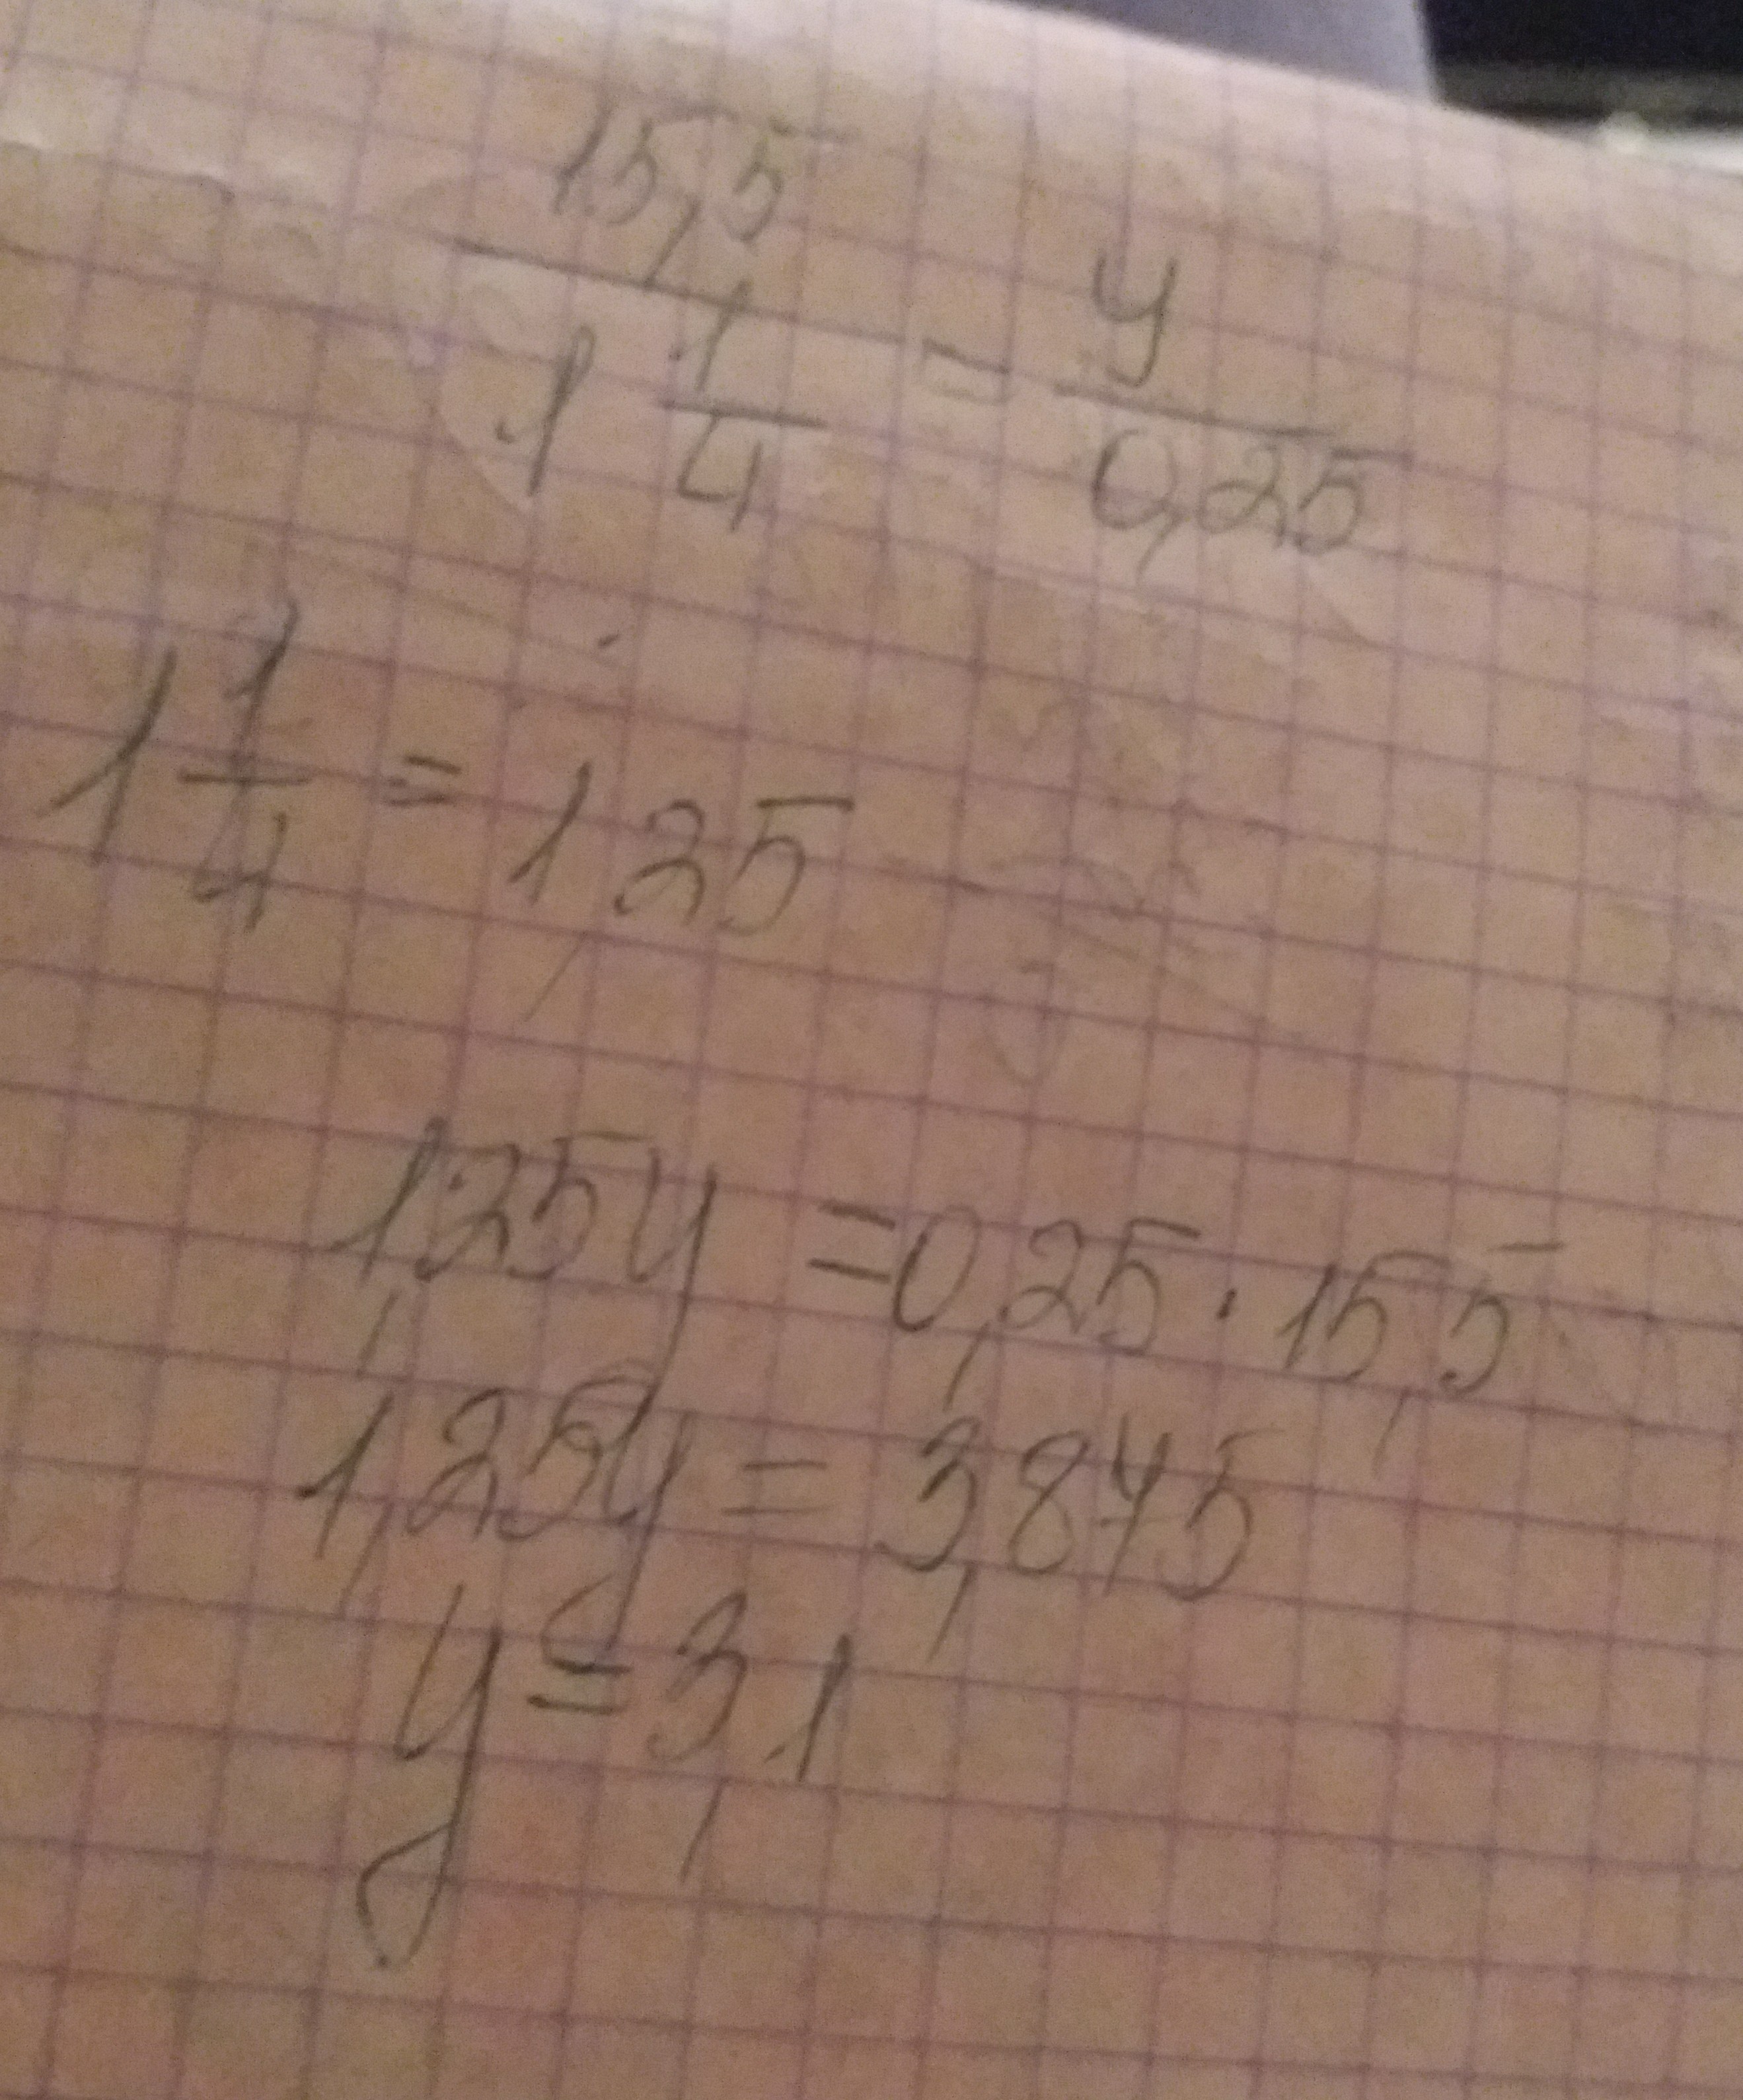 15,5 / 1 1/4 = y / 0,25
1 1/4 = 1,25
1,25y = 0,25 · 15,5
1,25y = 3,875
y = 3,1